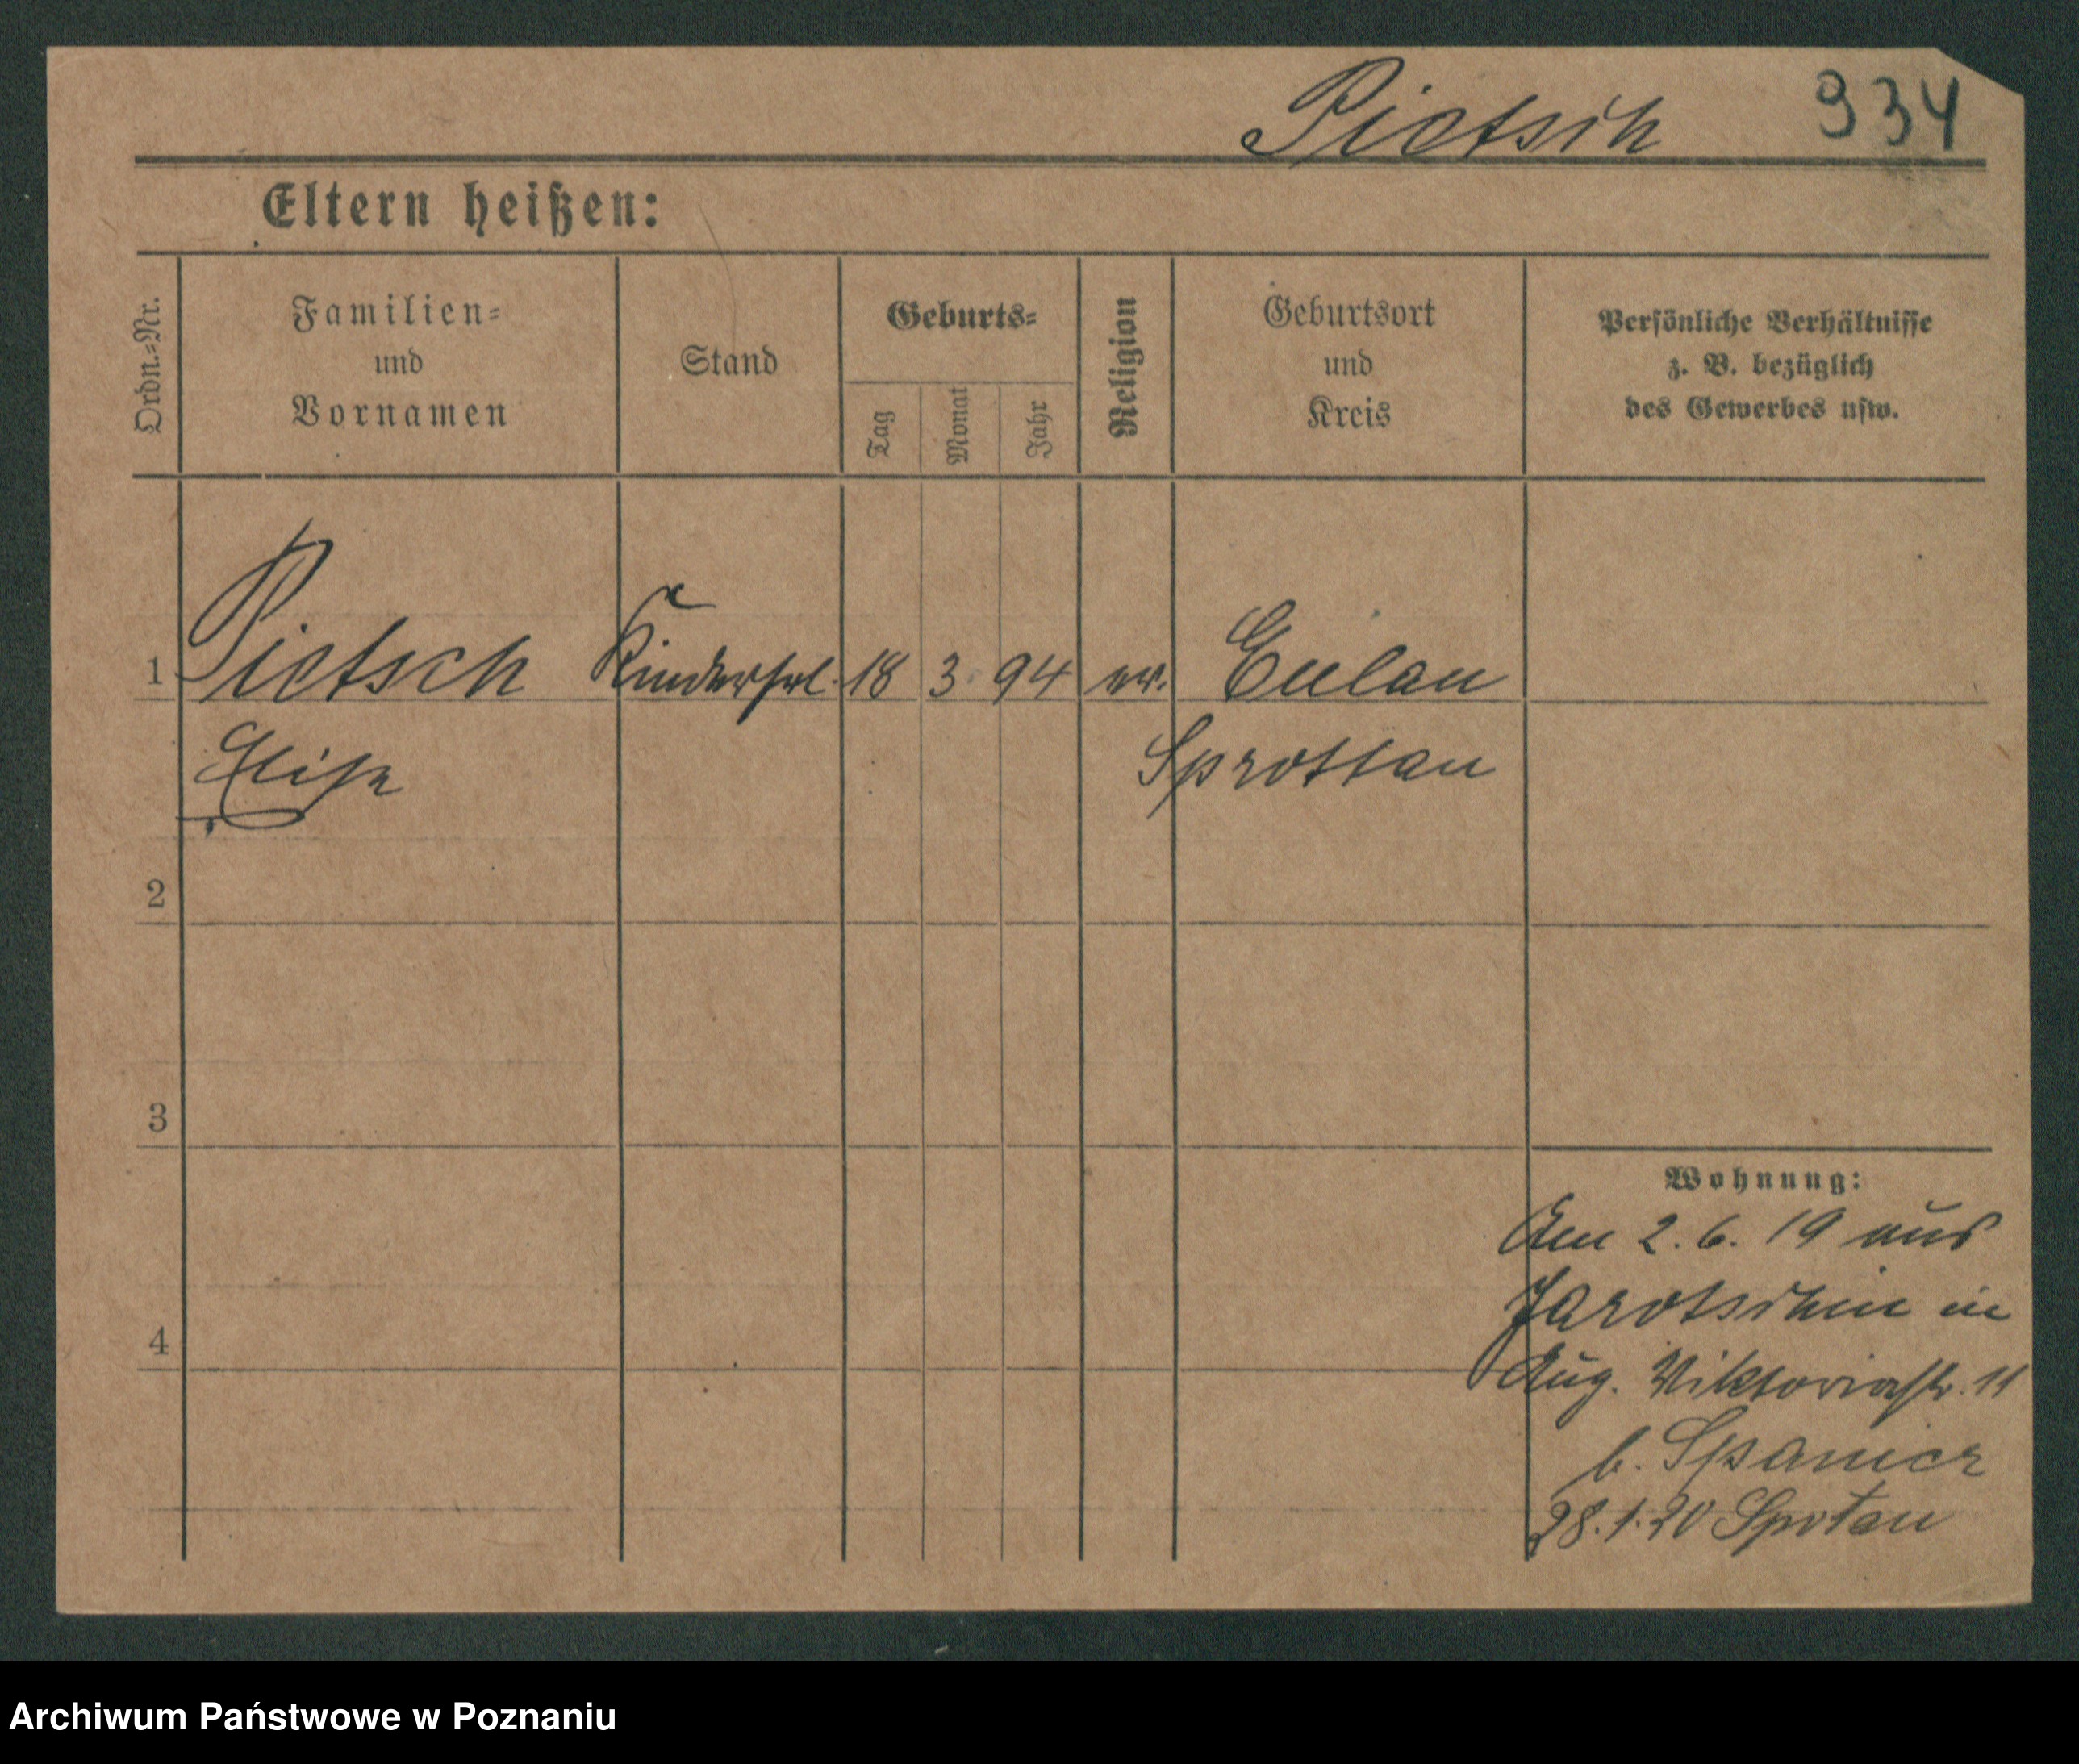 Pietsch 934
Eltern heißen:
Ordn.=Nr.
Familien=
und
Vornamen
Stand
Geburts=
Tag
Monat
Jahr
Religion
Geburtsort
und
Kreis
Persönliche Verhältnisse
z. B. bezüglich
des Gewerbes usw.
1 Pietsch Kinderfrl. 18 3 94 ev. Eulau
Elise Sprottau
2
3
Wohnung:
Am 2. 6. 19 aus
Jarotschin in
4
Aug. Viktoriastr. 11
b. Spanier
28.1.20 Sprotau
Archiwum Państwowe w Poznaniu